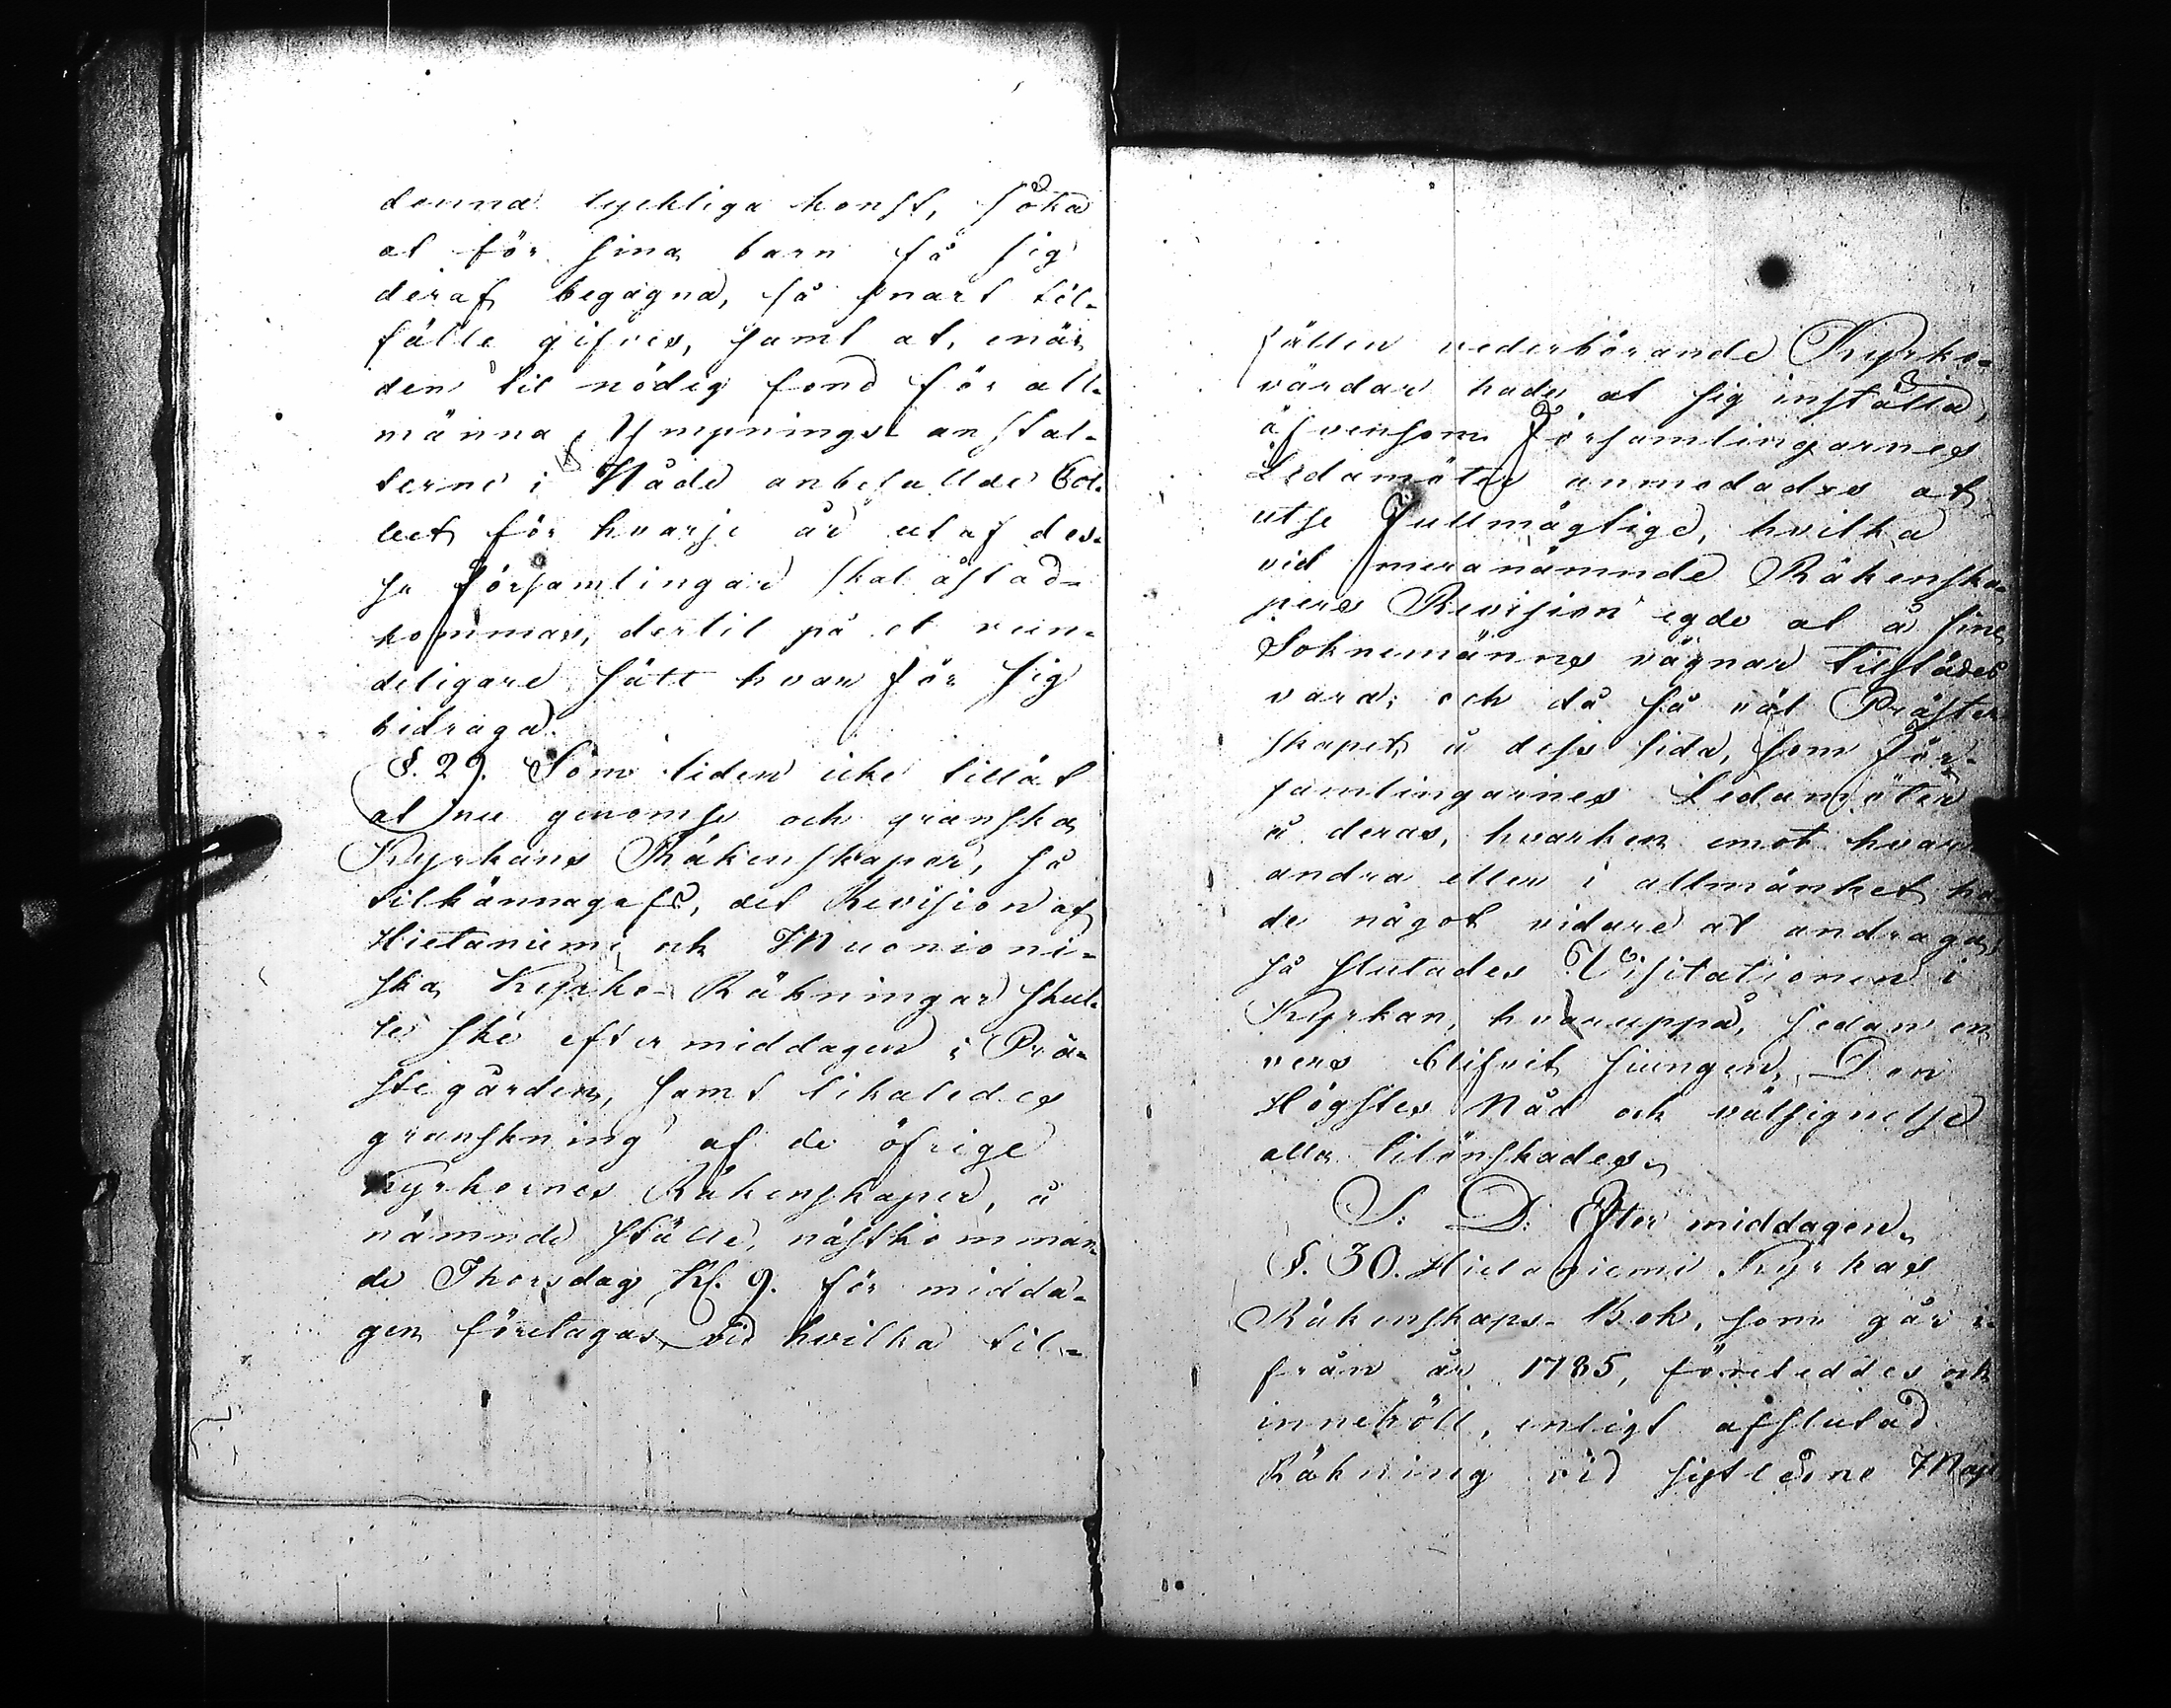 denna lyckliga konst, söka
at för sina barn få sig
deraf begagna, så snart til-
fälle gifves, samt at, enär
den til nödig fond för all-
männa Ympnings- anstal-
terne i Nåde anbefallde Col-
lect för hvarje år utaf des-
se Församlingar skal åstad-
kommas, dertil på et reen-
deligare sätt hvar för sig
bidraga.
§. 29. Som tiden icke tillät
at nu genomse och granska
Kyrkans Räkenskaper, så
tilkännagafs, det Revision af
Hietaniemi och Muonioni-
ska Kyrko- Räkningar skul-
le ske efter middagen i Prä-
stegården, samt likaledes
granskning af de öfrige
Kyrkornes Räkenskaper, å
nämnde ställe, nästkomman-
de Thorsdag Kl. 9. för midda-
gen företagas, vid hvilka til-
fällen vederbörande Kyrko-
värdar hade at sig inställa,
äfvensom Församlingarnes
Ledamöter anmodades at
utse Fullmägtige, hvilka
vid meranämnde Räkenska-
pers Revision egde at å sine
Soknemänns vägnar tilstädes
vara; och då så väl Präster-
skapet å dess sida, som För-
samlingarnes Ledamöter
å deras, hvarken emot hvar-
andra eller i allmänhet ha-
de något vidare at andraga,
så slutades Visitationen i
Kyrkan, hvaruppå, sedan en
vers blifvit siungen, Den
Högstes Nåd och välsignelse
alla tilönskades.
S. D. Efter middagen.
§. 30. Hietaniemi Kyrkas
Räkenskaps- Bok, som går i-
från år 1785, företeddes och
innehöll, enligt afslutad
Räkning vid sistledne Maji